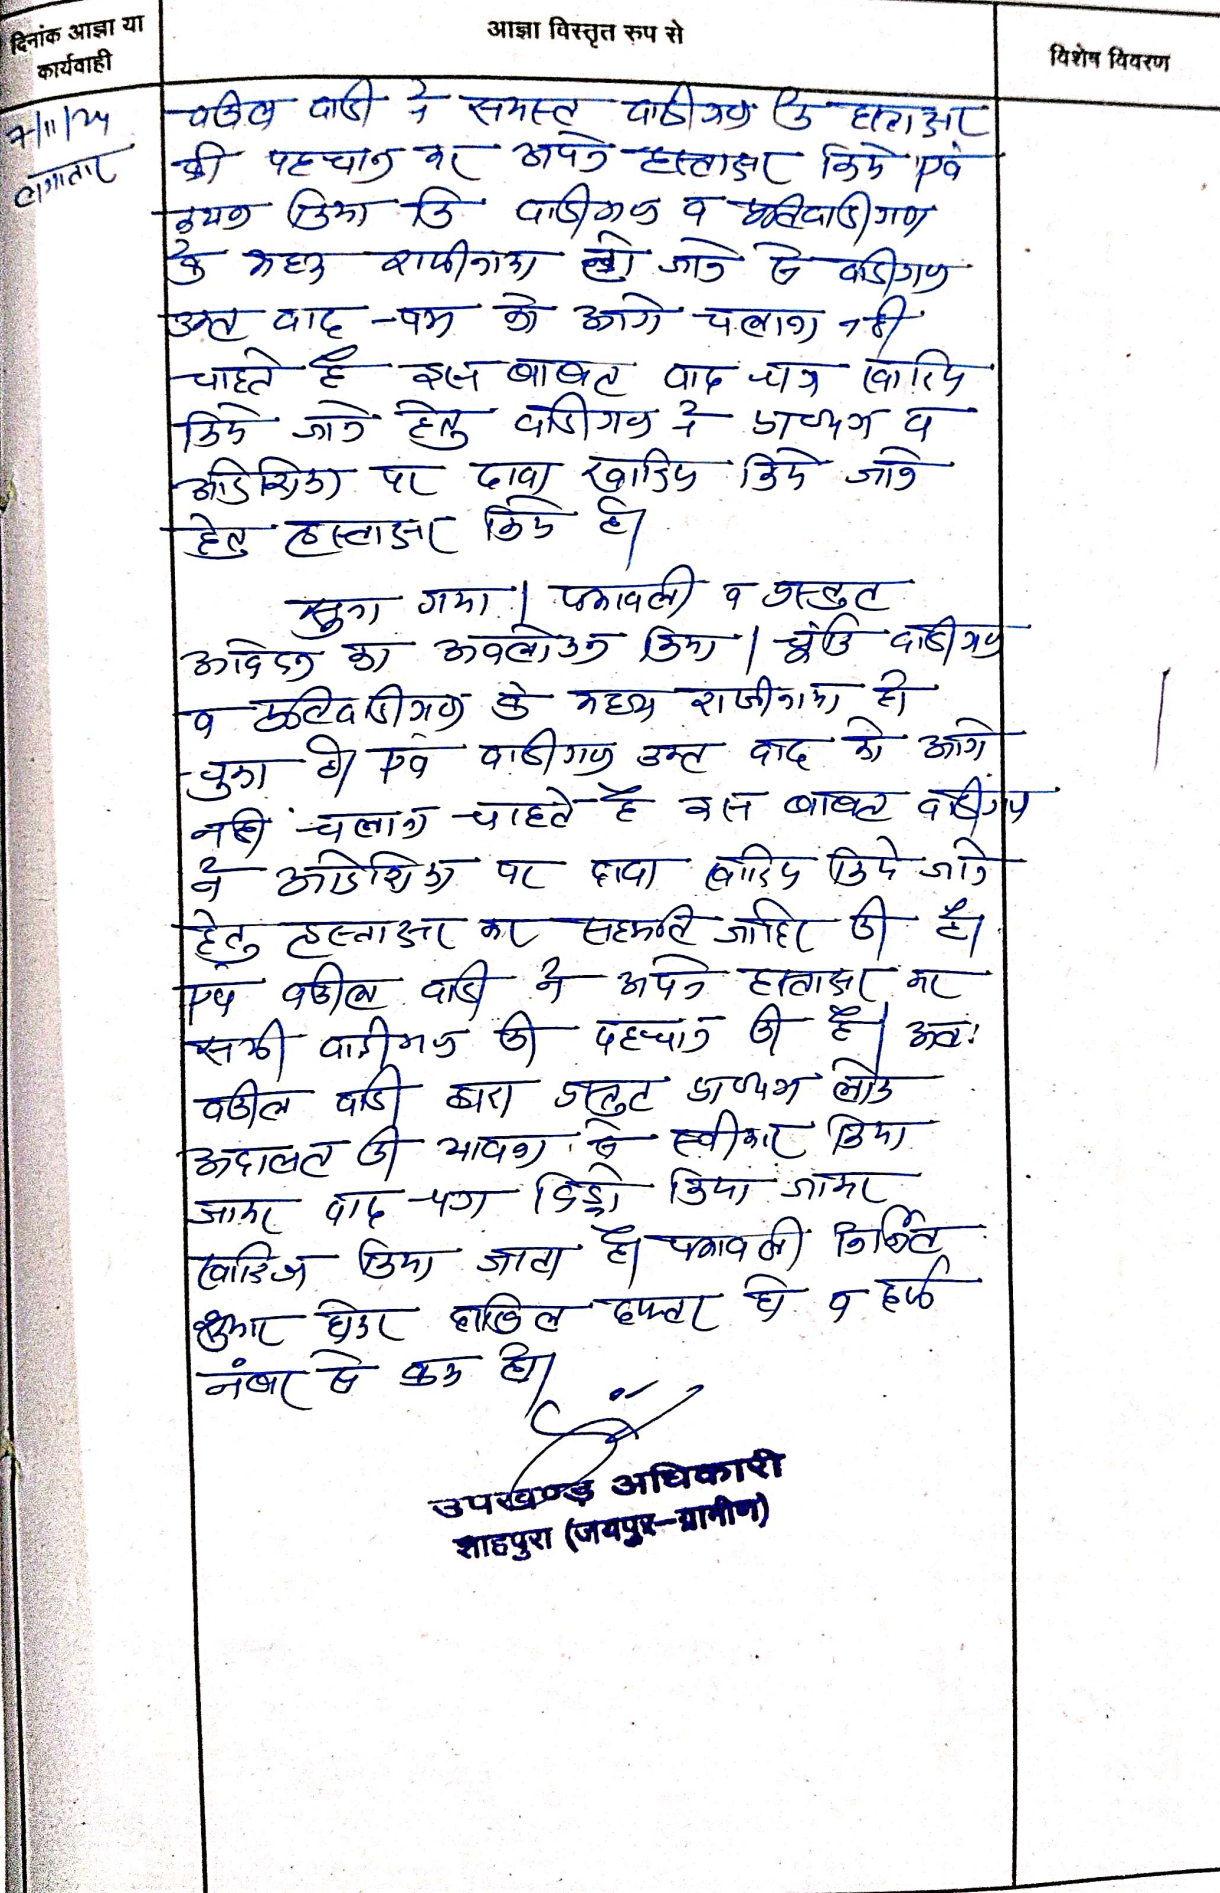 दिनांक आज्ञा या
कार्यवाही
आज्ञा विस्तृत रुप से
विशेष विवरण
7/11/24
लगातार
वकील वादी ने समस्त वादीगण के हस्ताक्षर
की पहचान कर अपने हस्ताक्षर किये एवं
कथन किया कि वादीगण व प्रतिवादीगण
के मध्य राजीनामा हो जाने से वादीगण
उक्त वाद-पत्र को आगे चलाना नही
चाहते है इस बाबत वाद पत्र खारिज
किये जाने हेतु वादीगण ने प्रा०पत्र व
आदेशिका पर दावा खारिज किये जाने
हेतु हस्ताक्षर किये है।
सुना गया। पत्रावली व प्रस्तुत
आवेदन का अवलोकन किया। चूंकि वादीगण
व प्रतिवादीगण के मध्य राजीनामा हो
चुका है। एवं वादीगण उक्त वाद को आगे
नही चलाना चाहते है इस बाबत वादीगण
ने आदेशिका पर दावा खारिज किये जाने
हेतु हस्ताक्षर कर सहमति जाहिर की है।
एवं वकील वादी ने अपने हस्ताक्षर कर
सभी वादीगण की पहचान की है। अतः
वकील वादी द्वारा प्रस्तुत प्रा०पत्र लोक
अदालत की भावना से स्वीकार किया
जाकर वाद पत्र विड्रो किया जाकर
खारिज किया जाता है। पत्रावली निर्णित
शुमार होकर दाखिल दफ्तर हो व दर्ज
नंबर से कम हो।
उपखण्ड अधिकारी
शाहपुरा (जयपुर-ग्रामीण)